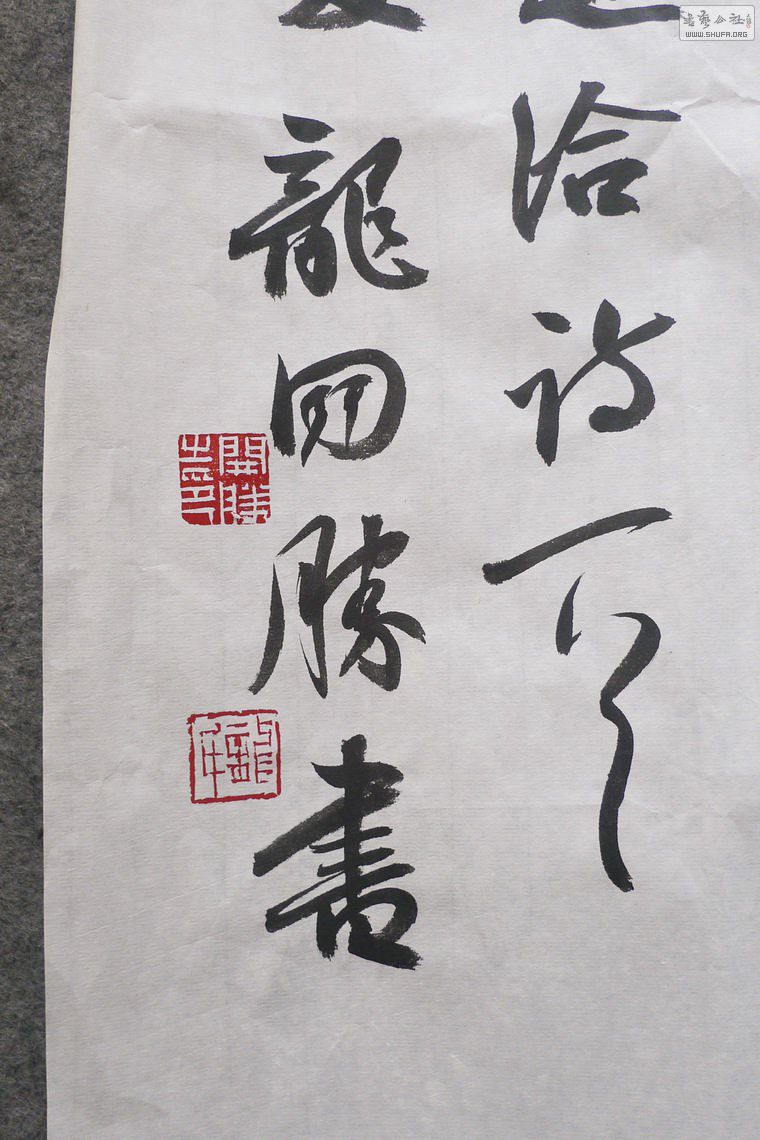 書藝公社
WWW.SHUFA.ORG
洽詩一首
龍開勝書
開勝之印